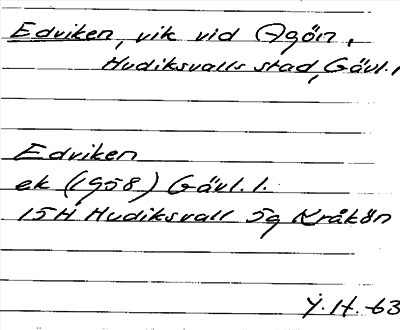 Edviken, vik vid Agön,
Hudiksvalls stad, Gävl. l.
Edviken
ek (1958) Gävl. l.
15H Hudiksvall 5g Kråkön
Y. H. -63